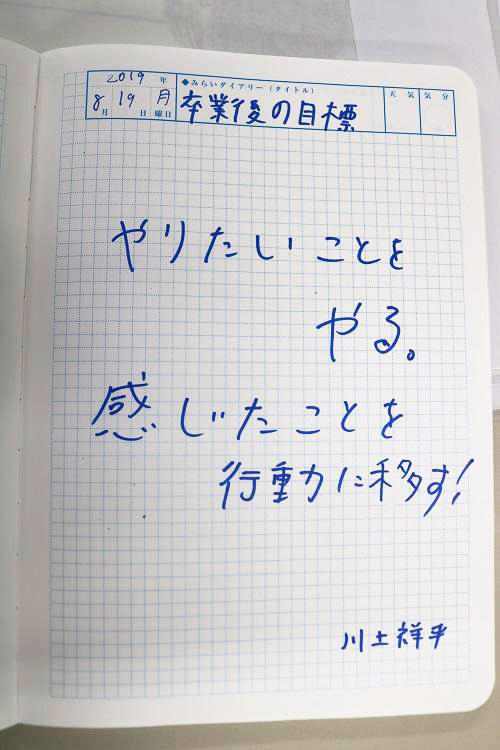 2019年
◆みらいダイアリー(タイトル)
天気 気分
8月19日月曜日
卒業後の目標
やりたいことを
やる。
感じたことを
行動力に移す!
川土祥平